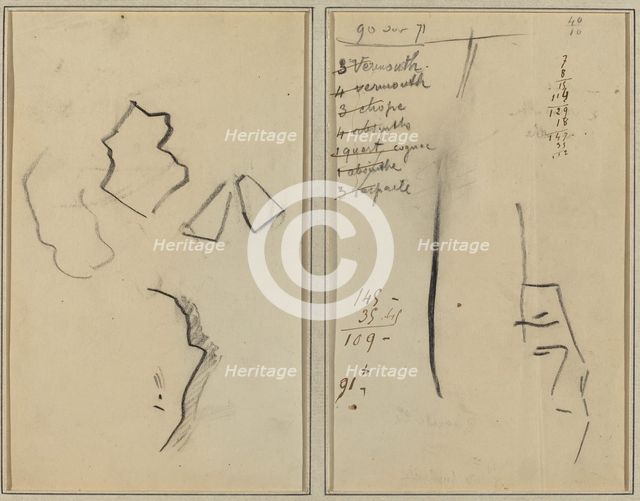 90 sur 71
3 Vermouth.
4 vermouth
3 chope
4 absinthe
1 quart cognac
1 absinthe
3
40
10
7
8
15
114
129
18
147
35
145 -
35.45
109 -
91
Heritage
Heritage
Heritage
Heritage
Heritage
Heritage
Heritage
Heritage
Heritage
C